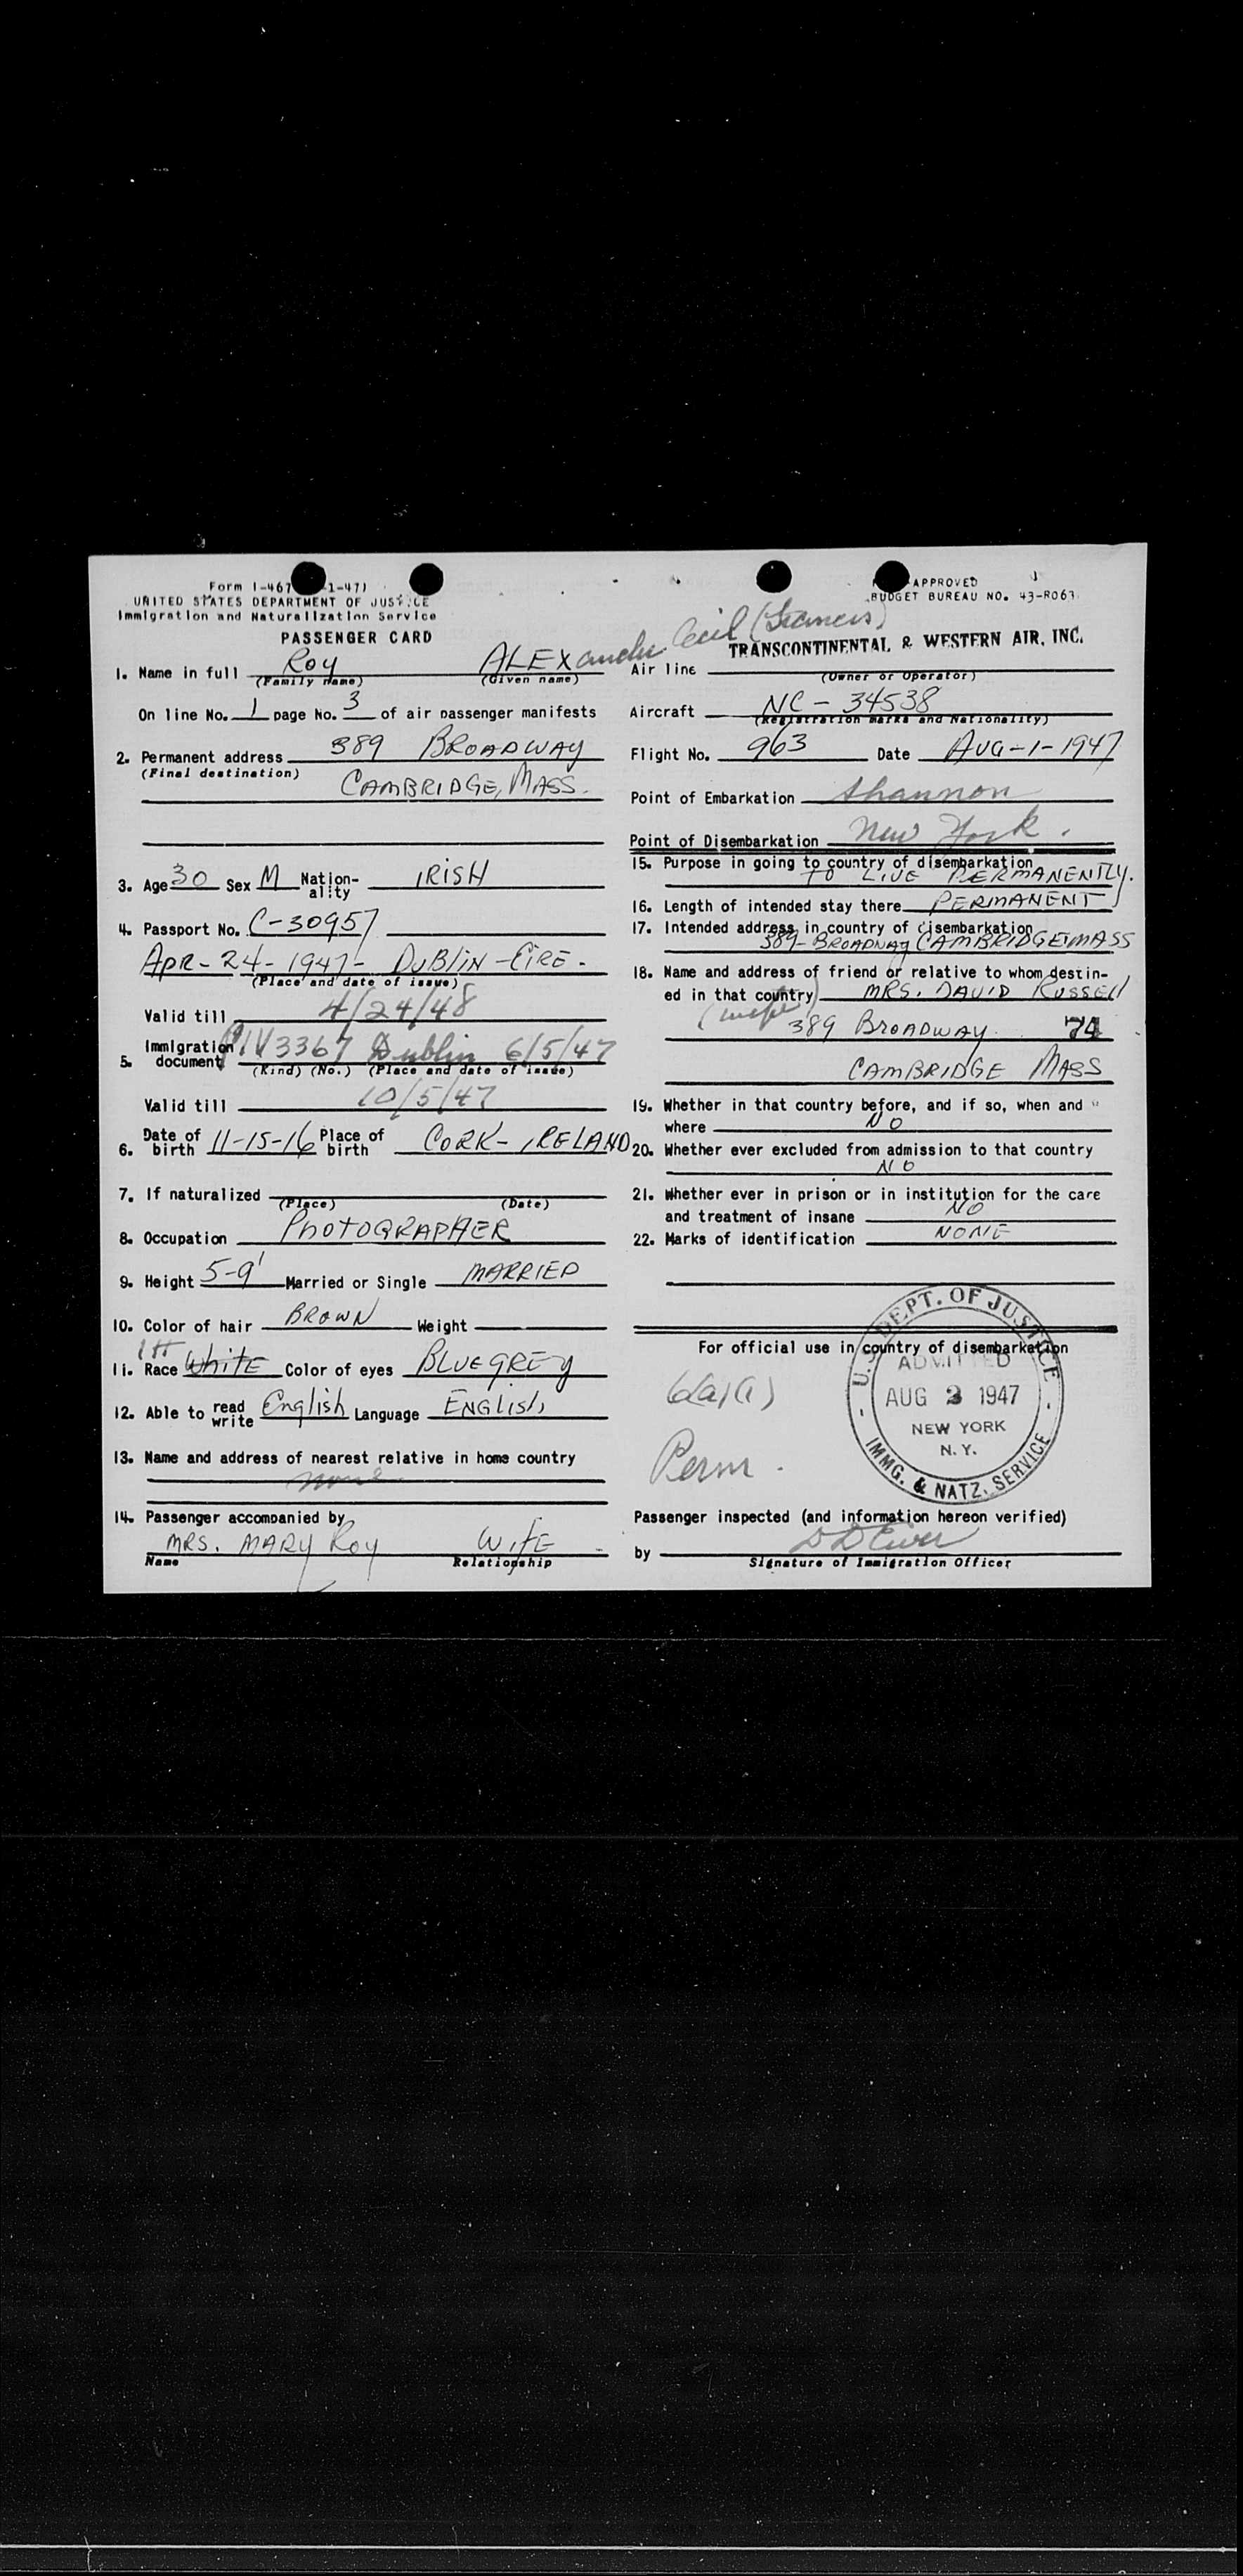 Form I-467 1-47)
UNITED STATES DEPARTMENT OF JUSTICE
Immigration and Naturalization Service
PASSENGER CARD
APPROVED
BUDGET BUREAU NO. 43-R063
1. Name in full Roy ALEXander Cecil (Francis)
(Family name) (Given name)
On line No. 1 page No. 3 of air passenger manifests
2. Permanent address 389 BROADWAY
(Final destination) CAMBRIDGE, MASS.
3. Age 30 Sex M Nation-ality IRISH
4. Passport No. C-30957
APR-24-1947- DUBLIN-EIRE-
(Place and date of issue)
Valid till 4/24/48
5. Immigration document IV 3367 Dublin 6/5/47
(Kind) (No.) (Place and date of issue)
Valid till 10/5/47
6. Date of birth 11-15-16 Place of birth CORK-IRELAND
7. If naturalized
(Place) (Date)
8. Occupation PHOTOGRAPHER
9. Height 5-9' Married or Single MARRIED
10. Color of hair BROWN Weight
11. Race WHITE Color of eyes BLUEGREY
12. Able to read write English Language ENGLISH
13. Name and address of nearest relative in home country
none
14. Passenger accompanied by
MRS. MARY Roy WIFE
Name Relationship
TRANSCONTINENTAL & WESTERN AIR, INC.
Air line
(Owner or Operator)
Aircraft NC-34538
(Registration marks and Nationality)
Flight No. 963 Date AUG-1-1947
Point of Embarkation Shannon
Point of Disembarkation New York.
15. Purpose in going to country of disembarkation
TO LIVE PERMANENTLY.
16. Length of intended stay there PERMANENT
17. Intended address in country of disembarkation
389-BROADWAY CAMBRIDGE MASS
18. Name and address of friend or relative to whom destin-
ed in that country MRS. DAVID RUSSELL
389 BROADWAY 74
CAMBRIDGE MASS
19. Whether in that country before, and if so, when and
where NO
20. Whether ever excluded from admission to that country
NO
21. Whether ever in prison or in institution for the care
and treatment of insane NO
22. Marks of identification NONE
For official use in country of disembarkation
Perm.
U.S. DEPT. OF JUSTICE
ADMITTED
AUG 1947
NEW YORK
N. Y.
IMMG. & NATZ. SERVICE
Passenger inspected (and information hereon verified)
by
Signature of Immigration Officer